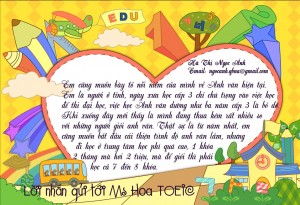 EDU
Hà Thị Ngọc Anh
Email: ngocanh.gbus@gmail.com
Em cũng muốn bày tỏ nỗi niềm của mình về Anh văn hiện tại.
Em là người ở tỉnh, ngày xưa học cấp 3 chỉ chú trọng vào việc học
để thi đại học, việc học Anh văn dường như ba năm cấp 3 là bỏ dở
Khi xuống đây mới thấy là mình đang thua kém rất nhiều so
với những người giỏi anh văn. Thật sự là từ năm nhất, em
cũng muốn bắt đầu cải thiện trình độ anh văn lắm, nhưng
đi học ở trung tâm học phí quá cao, 1 khóa
2 tháng mà hơi 2 triệu, mà để giỏi thì phải
học cả 7 đến 8 khóa.
Lời nhắn gửi tới Ms Hoa TOEIC